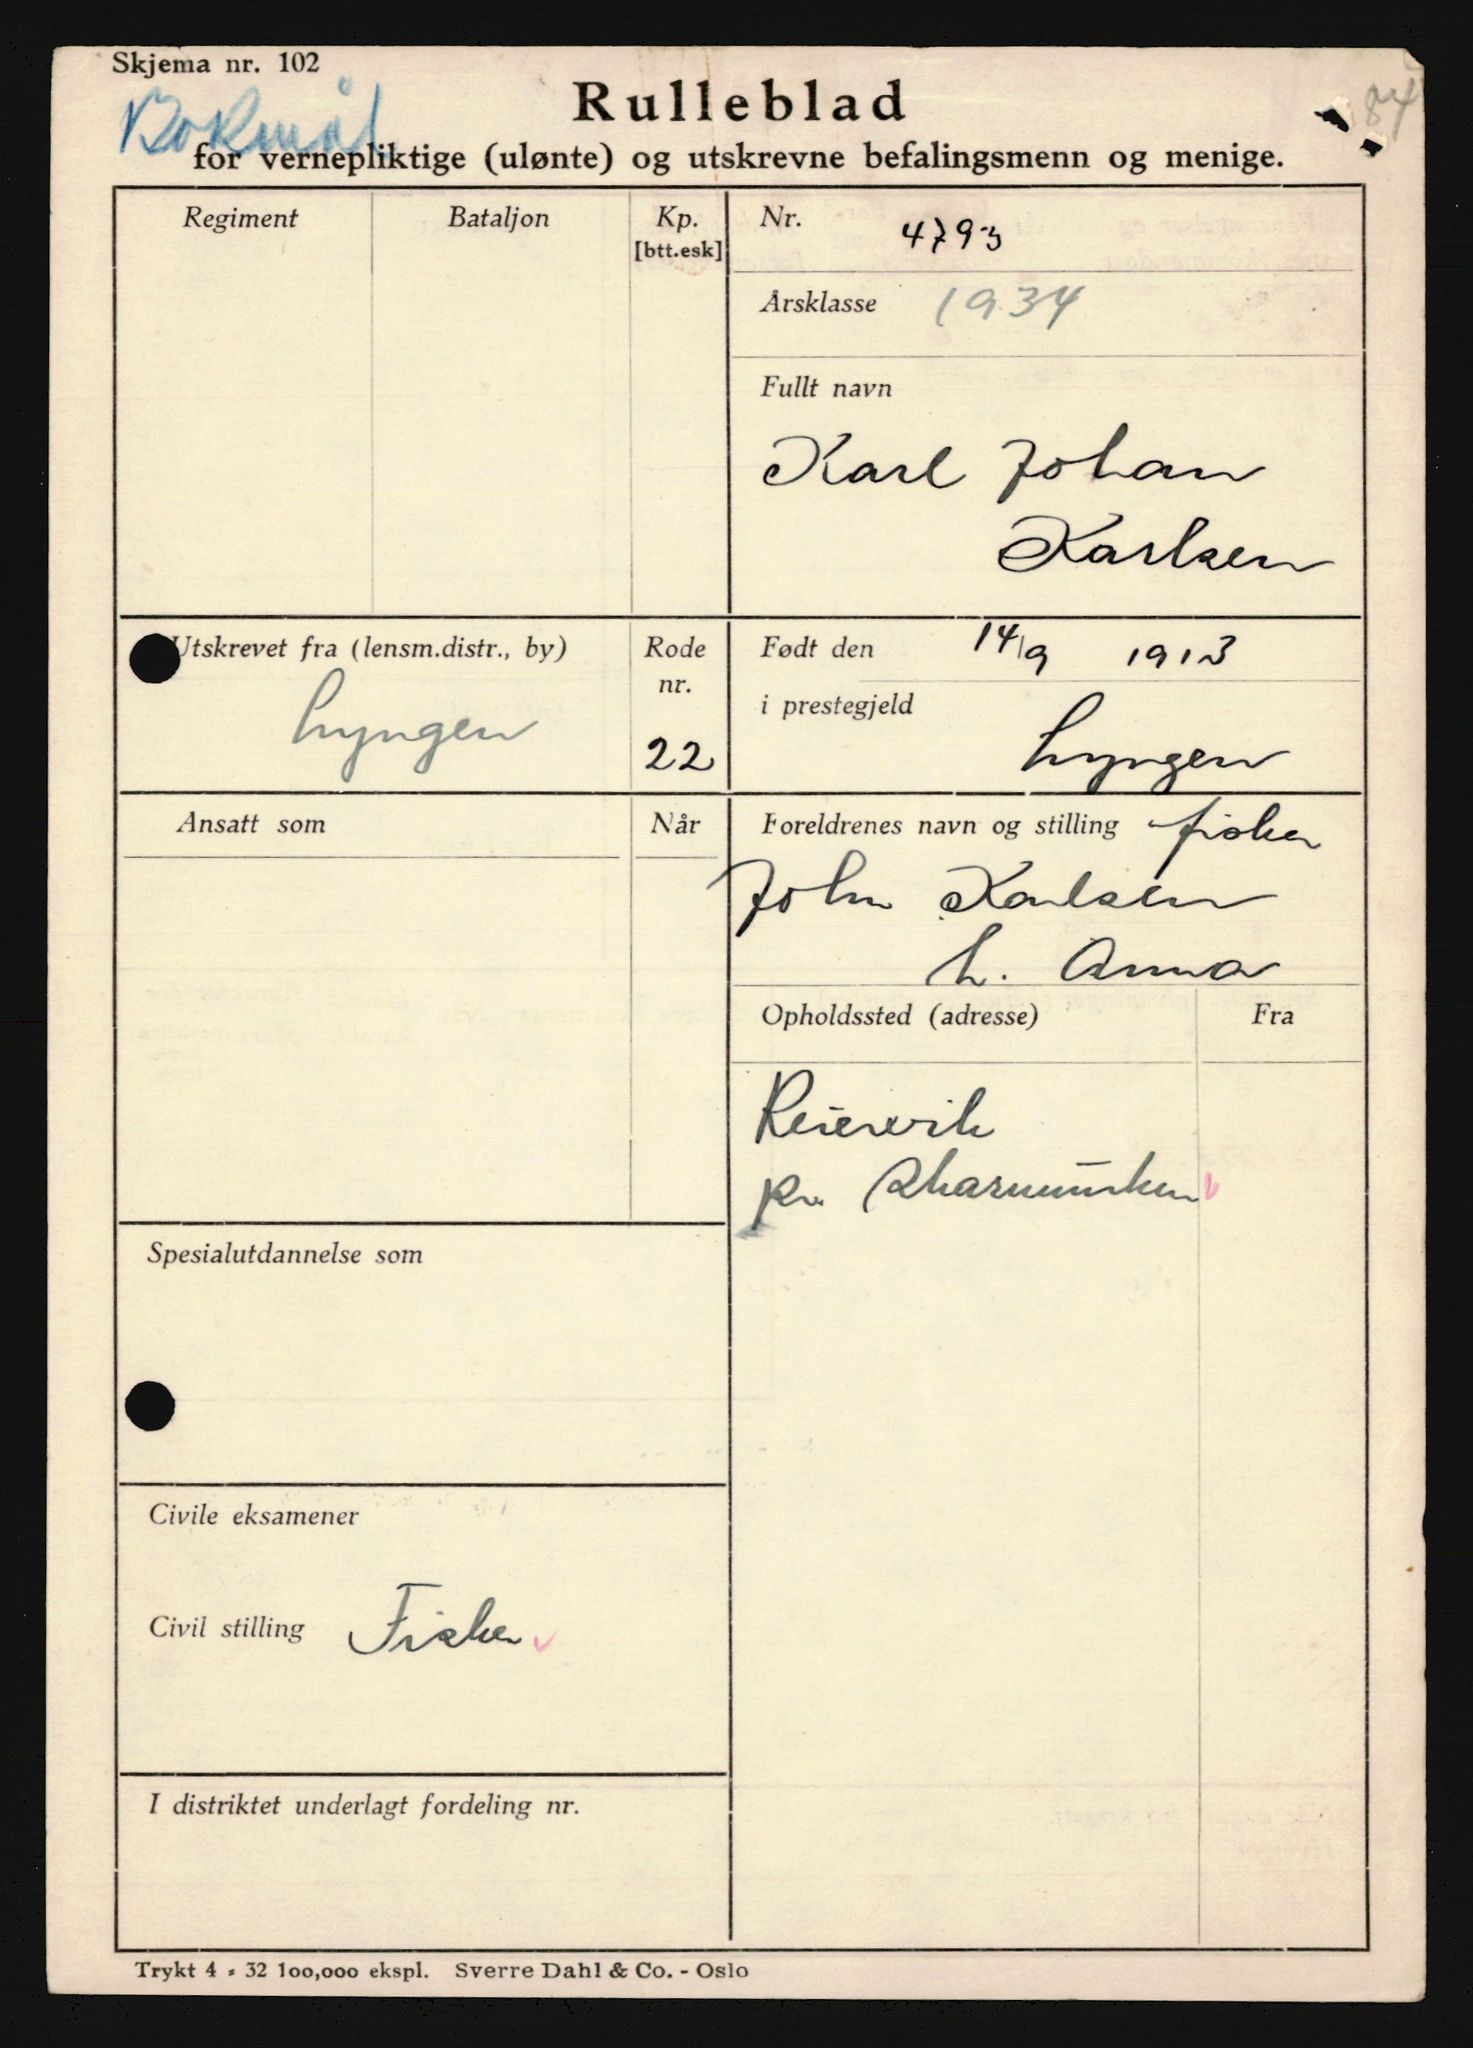 Skjema nr. 102
Rulleblad
84
Bokmål
for vernepliktige (ulønte) og utskrevne befalingsmenn og menige.
Regiment
Bataljon
Kp.
[btt.esk]
Nr. 4793
Årsklasse 1934
Fullt navn
Karl Johan
Karlsen
Utskrevet fra (lensm.distr., by)
Lyngen
Rode
nr.
22
Født den 14/9 1913
i prestegjeld
Lyngen
Ansatt som
Når
Foreldrenes navn og stilling fisker
John Karlsen
h. Anna
Opholdssted (adresse)
Fra
Reiervik
pr. Skarmunken
Spesialutdannelse som
Civile eksamener
Civil stilling Fisker
I distriktet underlagt fordeling nr.
Trykt 4 - 32 100,000 ekspl. Sverre Dahl & Co. - Oslo